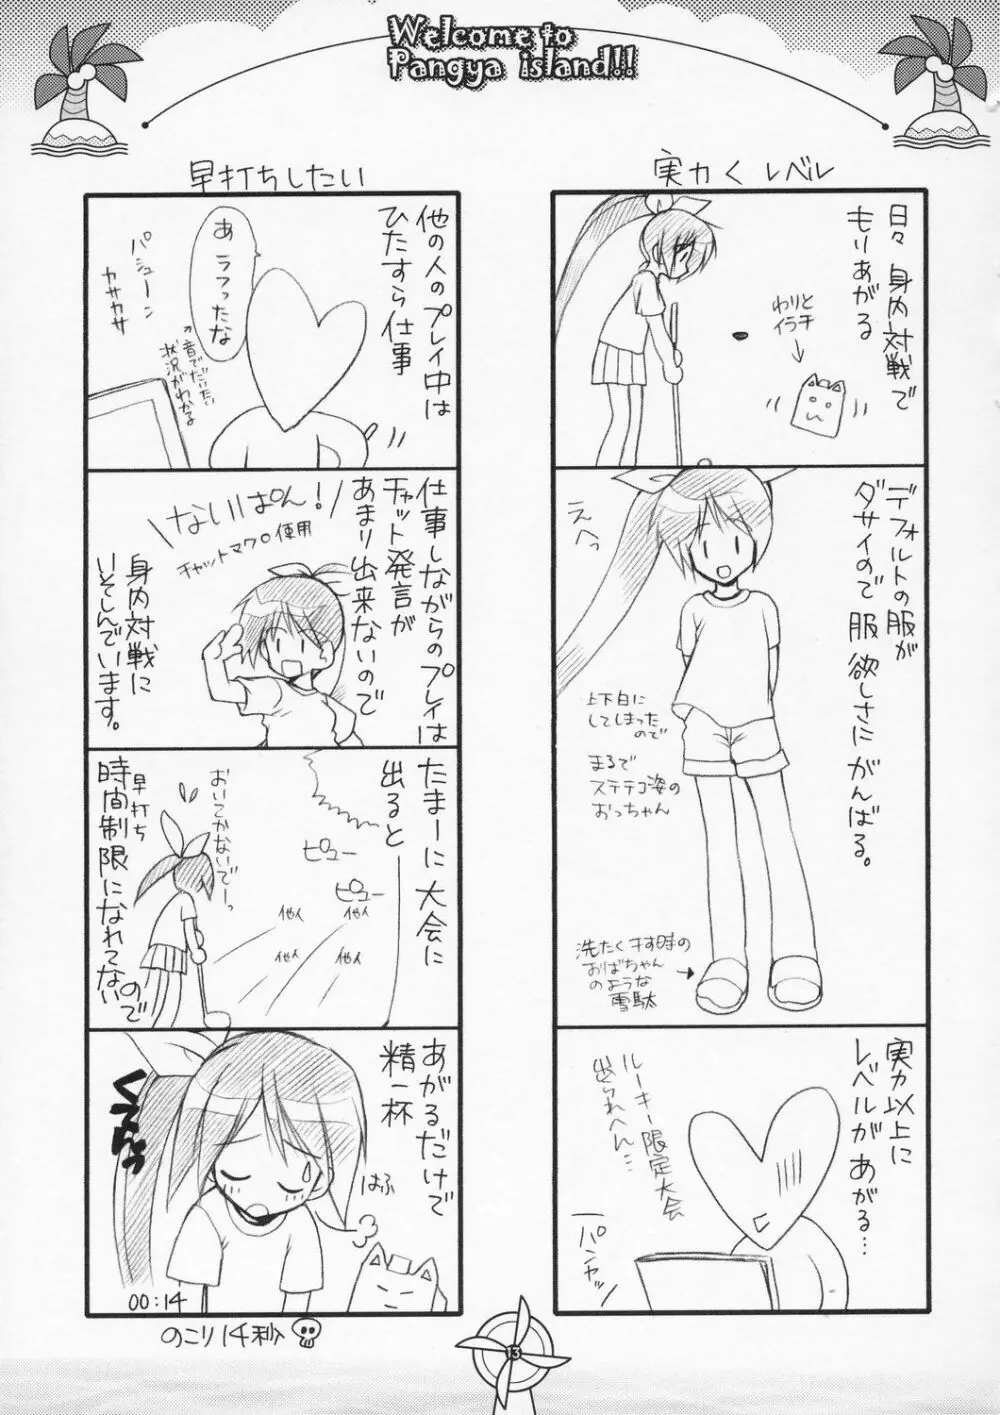 Welcome to
Pangya island!!
実力くレベル
日々身内対戦で
もりあがる
わりと
イラチ
デフォルトの服が
ダサイので服欲しさにがんばる。
えへっ
上下白に
してしまった
ので
まるで
ステテコ姿の
おっちゃん
洗たく干す時の
おばちゃん
のような
雪駄
実力以上に
レベルがあがる…
ルーキー限定大会
出られへん…
パンヤッ
早打ちしたい
他の人のプレイ中は
ひたすら仕事
あ ラフったな
パシューン
カサカサ
音でだいたい
状況がわかる
仕事しながらのプレイは
チャット発言が
あまり出来ないので
ないぱん!
チャットマクロ使用
身内対戦に
いそしんでいます。
たまーに大会に
出ると
ピュー
ピュー
他人
他人
他人
他人
おいてかないでーっ
早打ち
時間制限になれてないので
あがるだけで
精一杯
はふ
00:14
のこり14秒
13